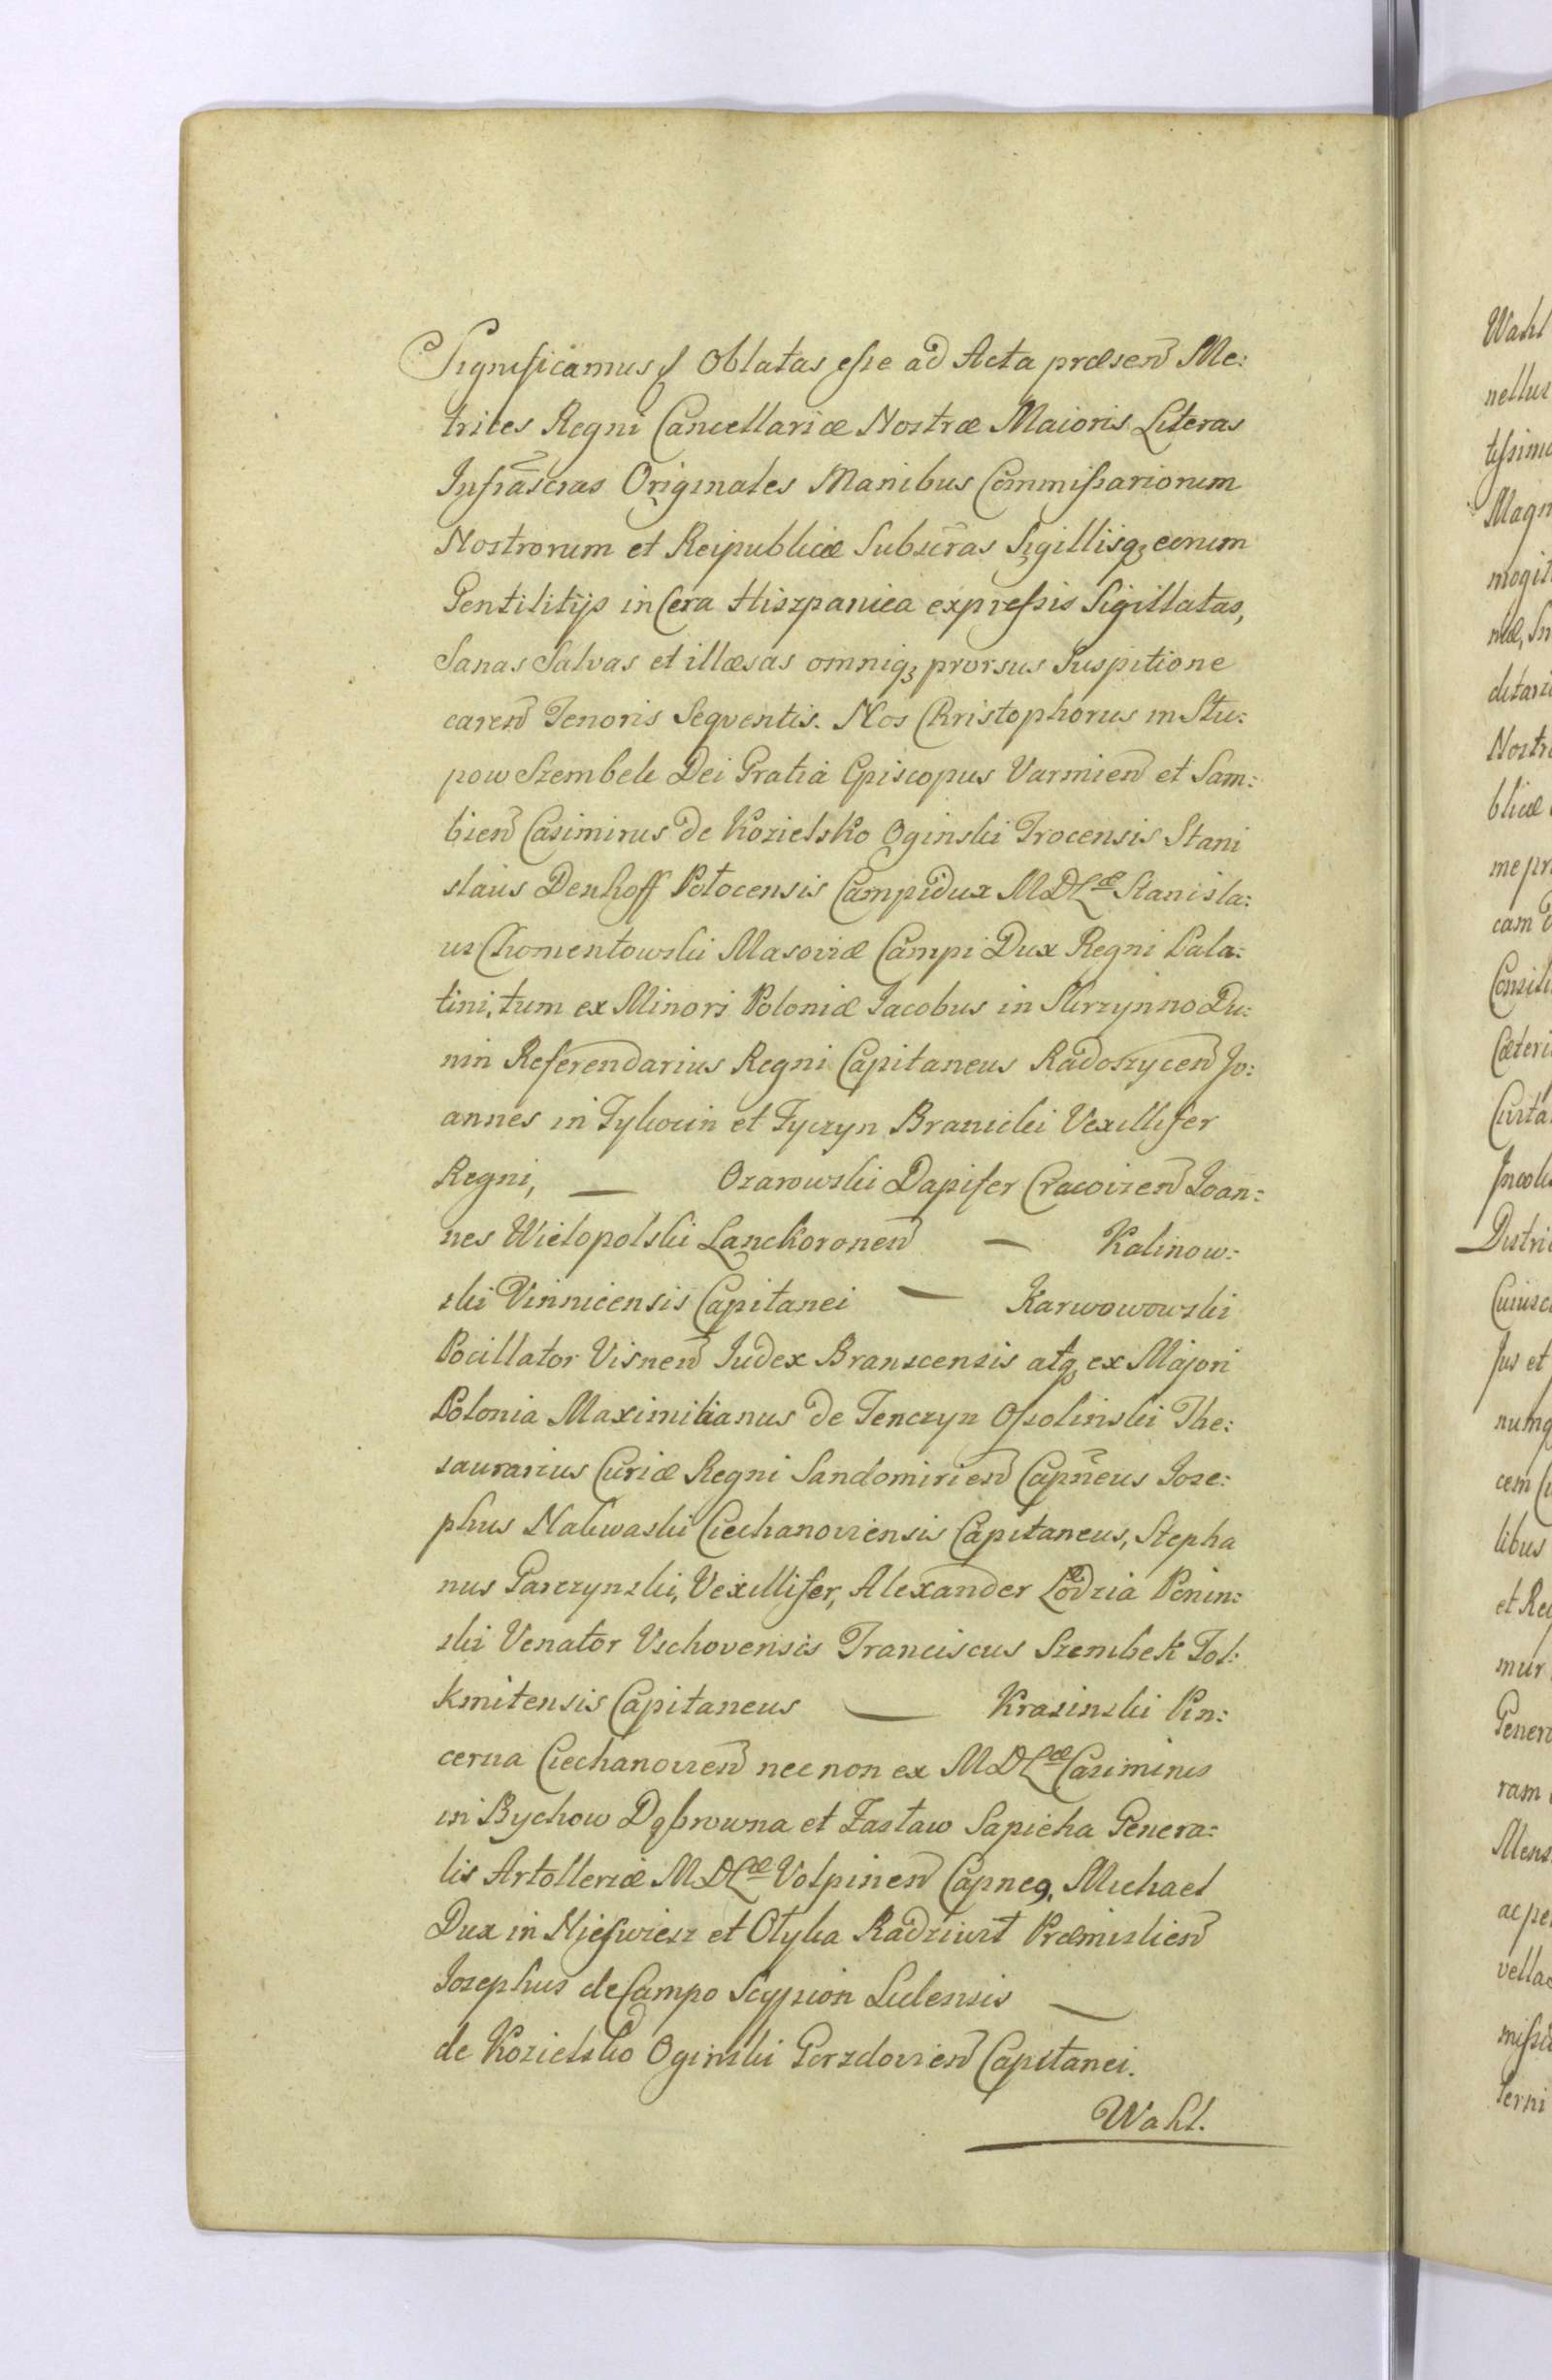 Significamus &c Oblatas esse ad Acta præsen̄ Me:
trices Regni Cancellariæ Nostræ Maioris Literas
Infrãscras Originales Manibus Commissariorum
Nostrorum et Reipublicæ Subscr̃as Sigillisq₃ eorum
Gentilitijs in Cera Hiszpanica expressis Sigillatas,
Sanas Salvas et illæsas omniq₃ prorsus Suspitione
caren̄ Tenoris Seqventis. Nos Christophorus in Stu:
pow Szembek Dei Gratia Episcopus Varmien̄ et Sam:
bien̄ Casimirus de Kozielsko Oginski Trocensis Stani
slaus Denhoff Połocensis Campidux MDLæ Stanisla:
us Chomentowski Masoviæ Campi Dux Regni Pala:
tini, tum ex Minori Poloniæ Jacobus in Skrzynno Du:
nin Referendarius Regni Capitaneus Radoszycen̄ Jo:
annes in Tykocin et Tyczyn Branicki Vexillifer
Regni, — Ozarowski Dapifer Cracovien̄ Joan:
nes Wielopolski Lanckoronen̄ — Kalinow:
ski Vinnicensis Capitanei — Karwowowski
Pocillator Visnen̄ Judex Branscensis atq₃ ex Majori
Polonia Maximilianus de Tenczyn Ossolinski The:
saurarius Curiæ Regni Sandomirien̄ Capñeus Jose:
phus Nakwaski Ciechanoviensis Capitaneus, Stepha
nus Garczynski, Vexillifer, Alexander Łodzia Ponin:
ski Venator Vschovensis Franciscus Szembek Tol:
kmitensis Capitaneus — Krasinski Pin:
cerna Ciechanovien̄ nec non ex MDLæ Casimirus
in Bychow Dąbrowna et Zasław Sapieha Genera:
lis Artolleriæ MDLæ Volpinen̄ Capne9, Michael
Dux in Nieswiesz et Ołyka Radziwił Præmislien̄
Josephus de Campo Scypion Lidensis —
de Kozielsko Oginski Gorzdovien̄ Capitanei.
Wahl.
Wahl
nellus
tissim
Magn
mogit
niæ, Sn
ditari
Nostr
blicæ
me pr
cam
Consili
Cæteri
Curta
Incol
Distri
Cuiusc
Jus et
numq
cem
libus
et Re
mur
Gener
ram
Mens
ac pe
vella
missi
terni